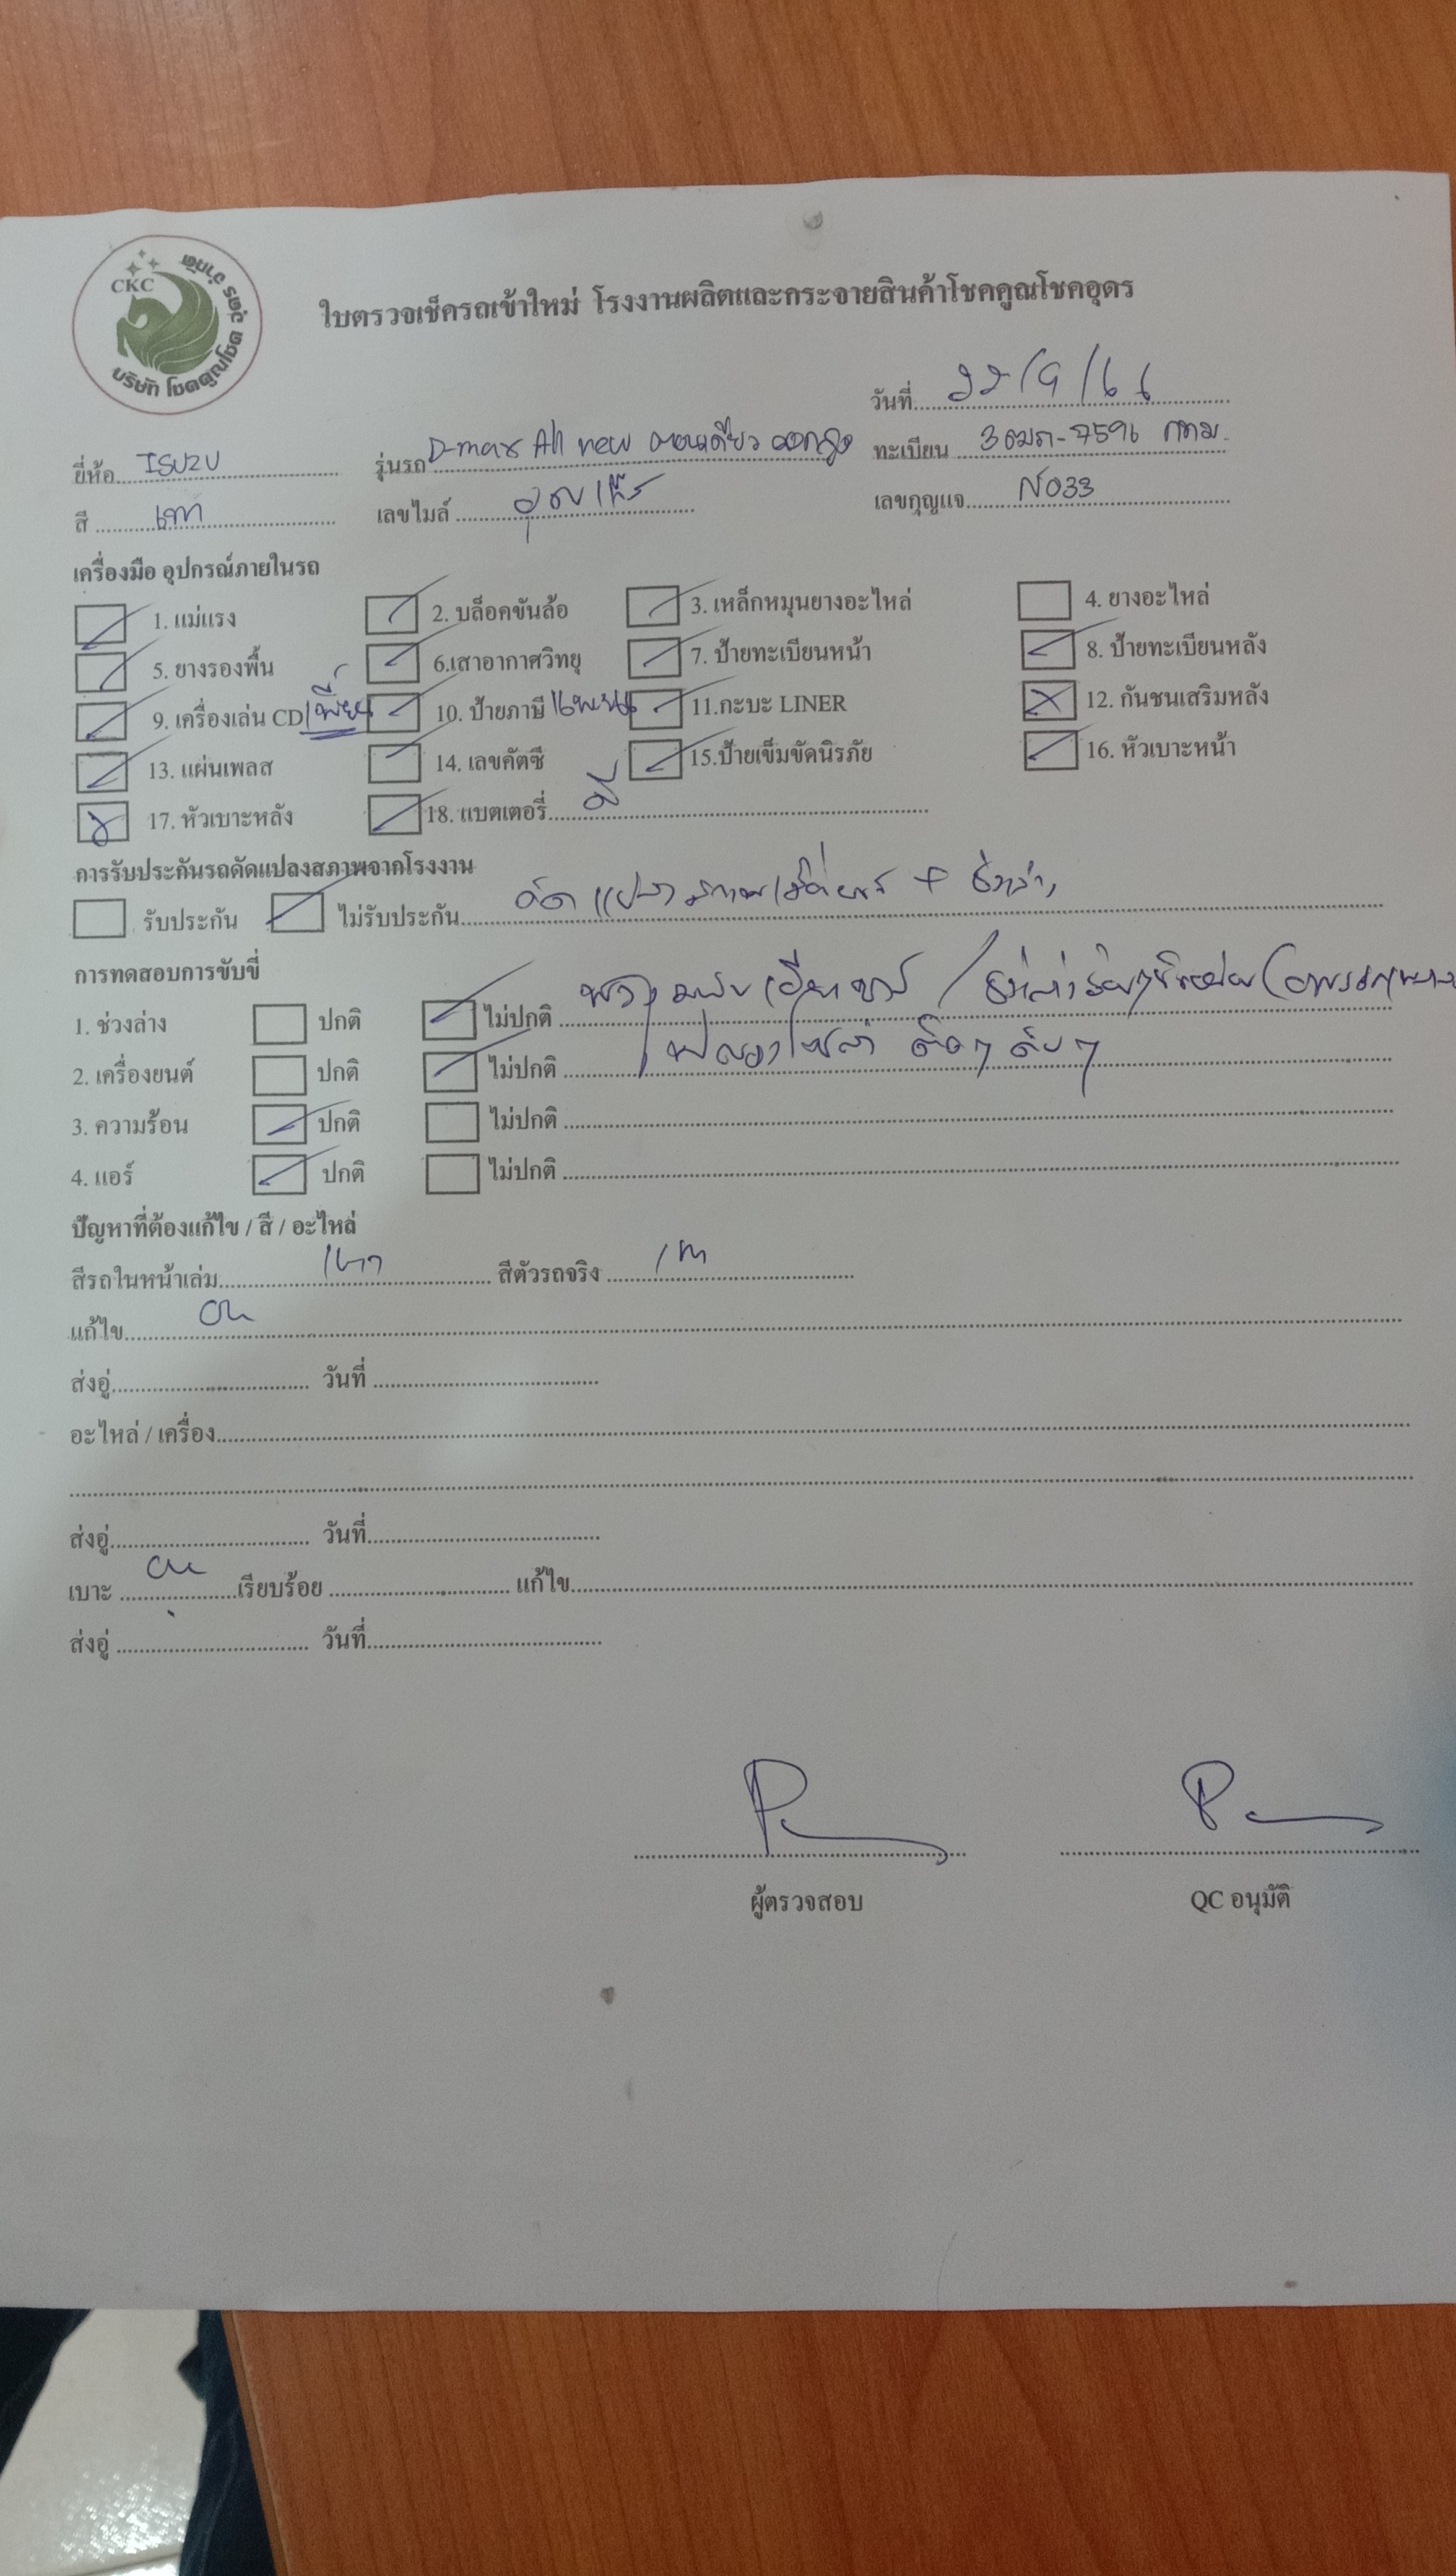 CKC
บริษัท โชคคูณโชค ตระวี จำกัด
ใบตรวจเช็ครถเข้าใหม่ โรงงานผลิตและกระจายสินค้าโชคคูณโชคอุดร
วันที่ 22/9/66
ยี่ห้อ ISUZU รุ่นรถ D-max All new ตอนเดียว ทะเบียน 3ฒภ-7596 กทม.
สี เทา เลขไมล์ เลขกุญแจ N033
เครื่องมือ อุปกรณ์ภายในรถ
1. แม่แรง 2. บล็อคขันล้อ 3. เหล็กหมุนยางอะไหล่ 4. ยางอะไหล่
5. ยางรองพื้น 6.เสาอากาศวิทยุ 7. ป้ายทะเบียนหน้า 8. ป้ายทะเบียนหลัง
9. เครื่องเล่น CD 10. ป้ายภาษี 11.กะบะ LINER 12. กันชนเสริมหลัง
13. แผ่นเพลส 14. เลขคัตซี 15.ป้ายเข็มขัดนิรภัย 16. หัวเบาะหน้า
17. หัวเบาะหลัง 18. แบตเตอรี่ มี
การรับประกันรถดัดแปลงสภาพจากโรงงาน
รับประกัน ไม่รับประกัน ดัดแปลงสภาพ
การทดสอบการขับขี่
1. ช่วงล่าง ปกติ ไม่ปกติ
2. เครื่องยนต์ ปกติ ไม่ปกติ
3. ความร้อน ปกติ ไม่ปกติ
4. แอร์ ปกติ ไม่ปกติ
ปัญหาที่ต้องแก้ไข / สี / อะไหล่
สีรถในหน้าเล่ม เทา สีตัวรถจริง เทา
แก้ไข
ส่งอู่ วันที่
อะไหล่ / เครื่อง
ส่งอู่ วันที่
เบาะ เรียบร้อย แก้ไข
ส่งอู่ วันที่
ผู้ตรวจสอบ QC อนุมัติ